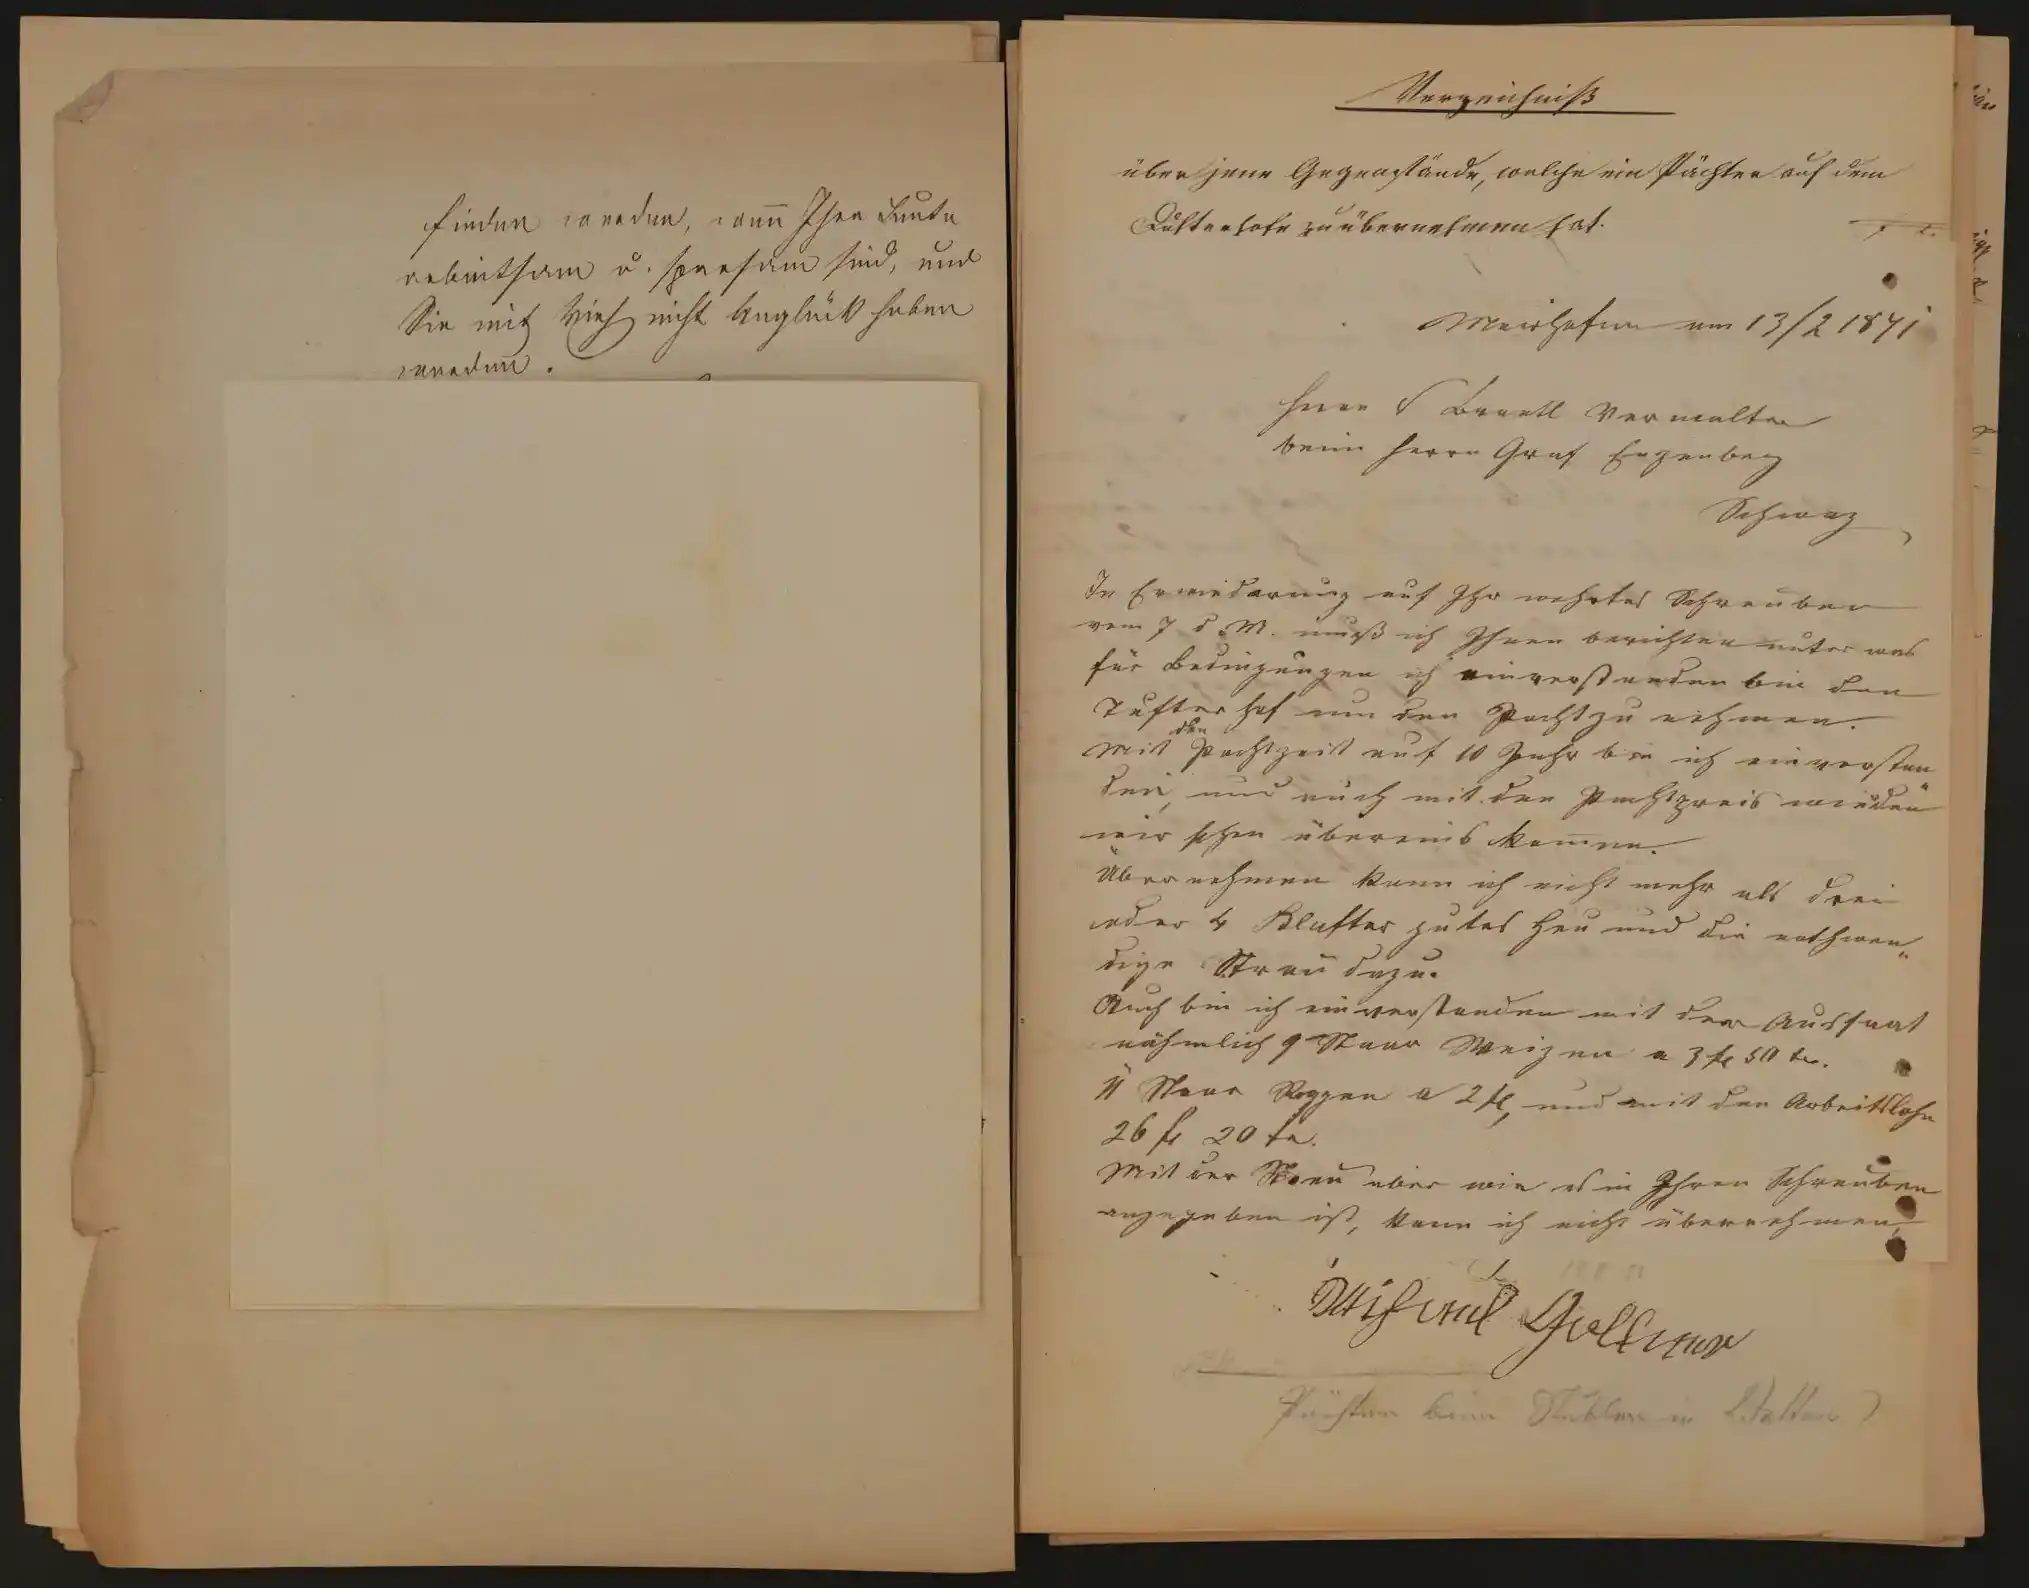 finden werden, wenn Ihre Leute
arbeitsam u. sparsam sind, und
Sie mit Vieh nicht Unglück haben
werden.
Verzeichniß
über jene Gegenstände, welche ein Pächter auf dem
Tufterhofe zu übernehmen hat.
Mairhofen am 13/2 1871
Herrn Verwalter
beim Herrn Graf Enzenberg
Schwaz
In Erwiederung auf Ihr wehrtes Schreiben
vom 7 d. M. muß ich Ihnen berichten unter was
für Bedingungen ich einverstanden bin den
Tufterhof um den Pacht zu nehmen.
Mit den Pachtzeit auf 10 Jahr bin ich einverstan
den, und auch mit den Pachtpreis würden
wir schon übereins kommen.
Übernehmen kann ich nicht mehr als drei
oder 4 Klafter gutes Heu und die nothwen„
dige Streu dazu.
Auch bin ich einverstanden mit der Aussaat
nähmlich 9 Staar Weizen a 3 fl 50 kr.
11 Staar Roggen a 2 fl, und mit den Arbeitslohn
26 fl 20 kr.
Mit der Streu aber wie es in Ihren Schreiben
angegeben ist, kann ich nicht übernehmen,
Pächter beim in Wattens